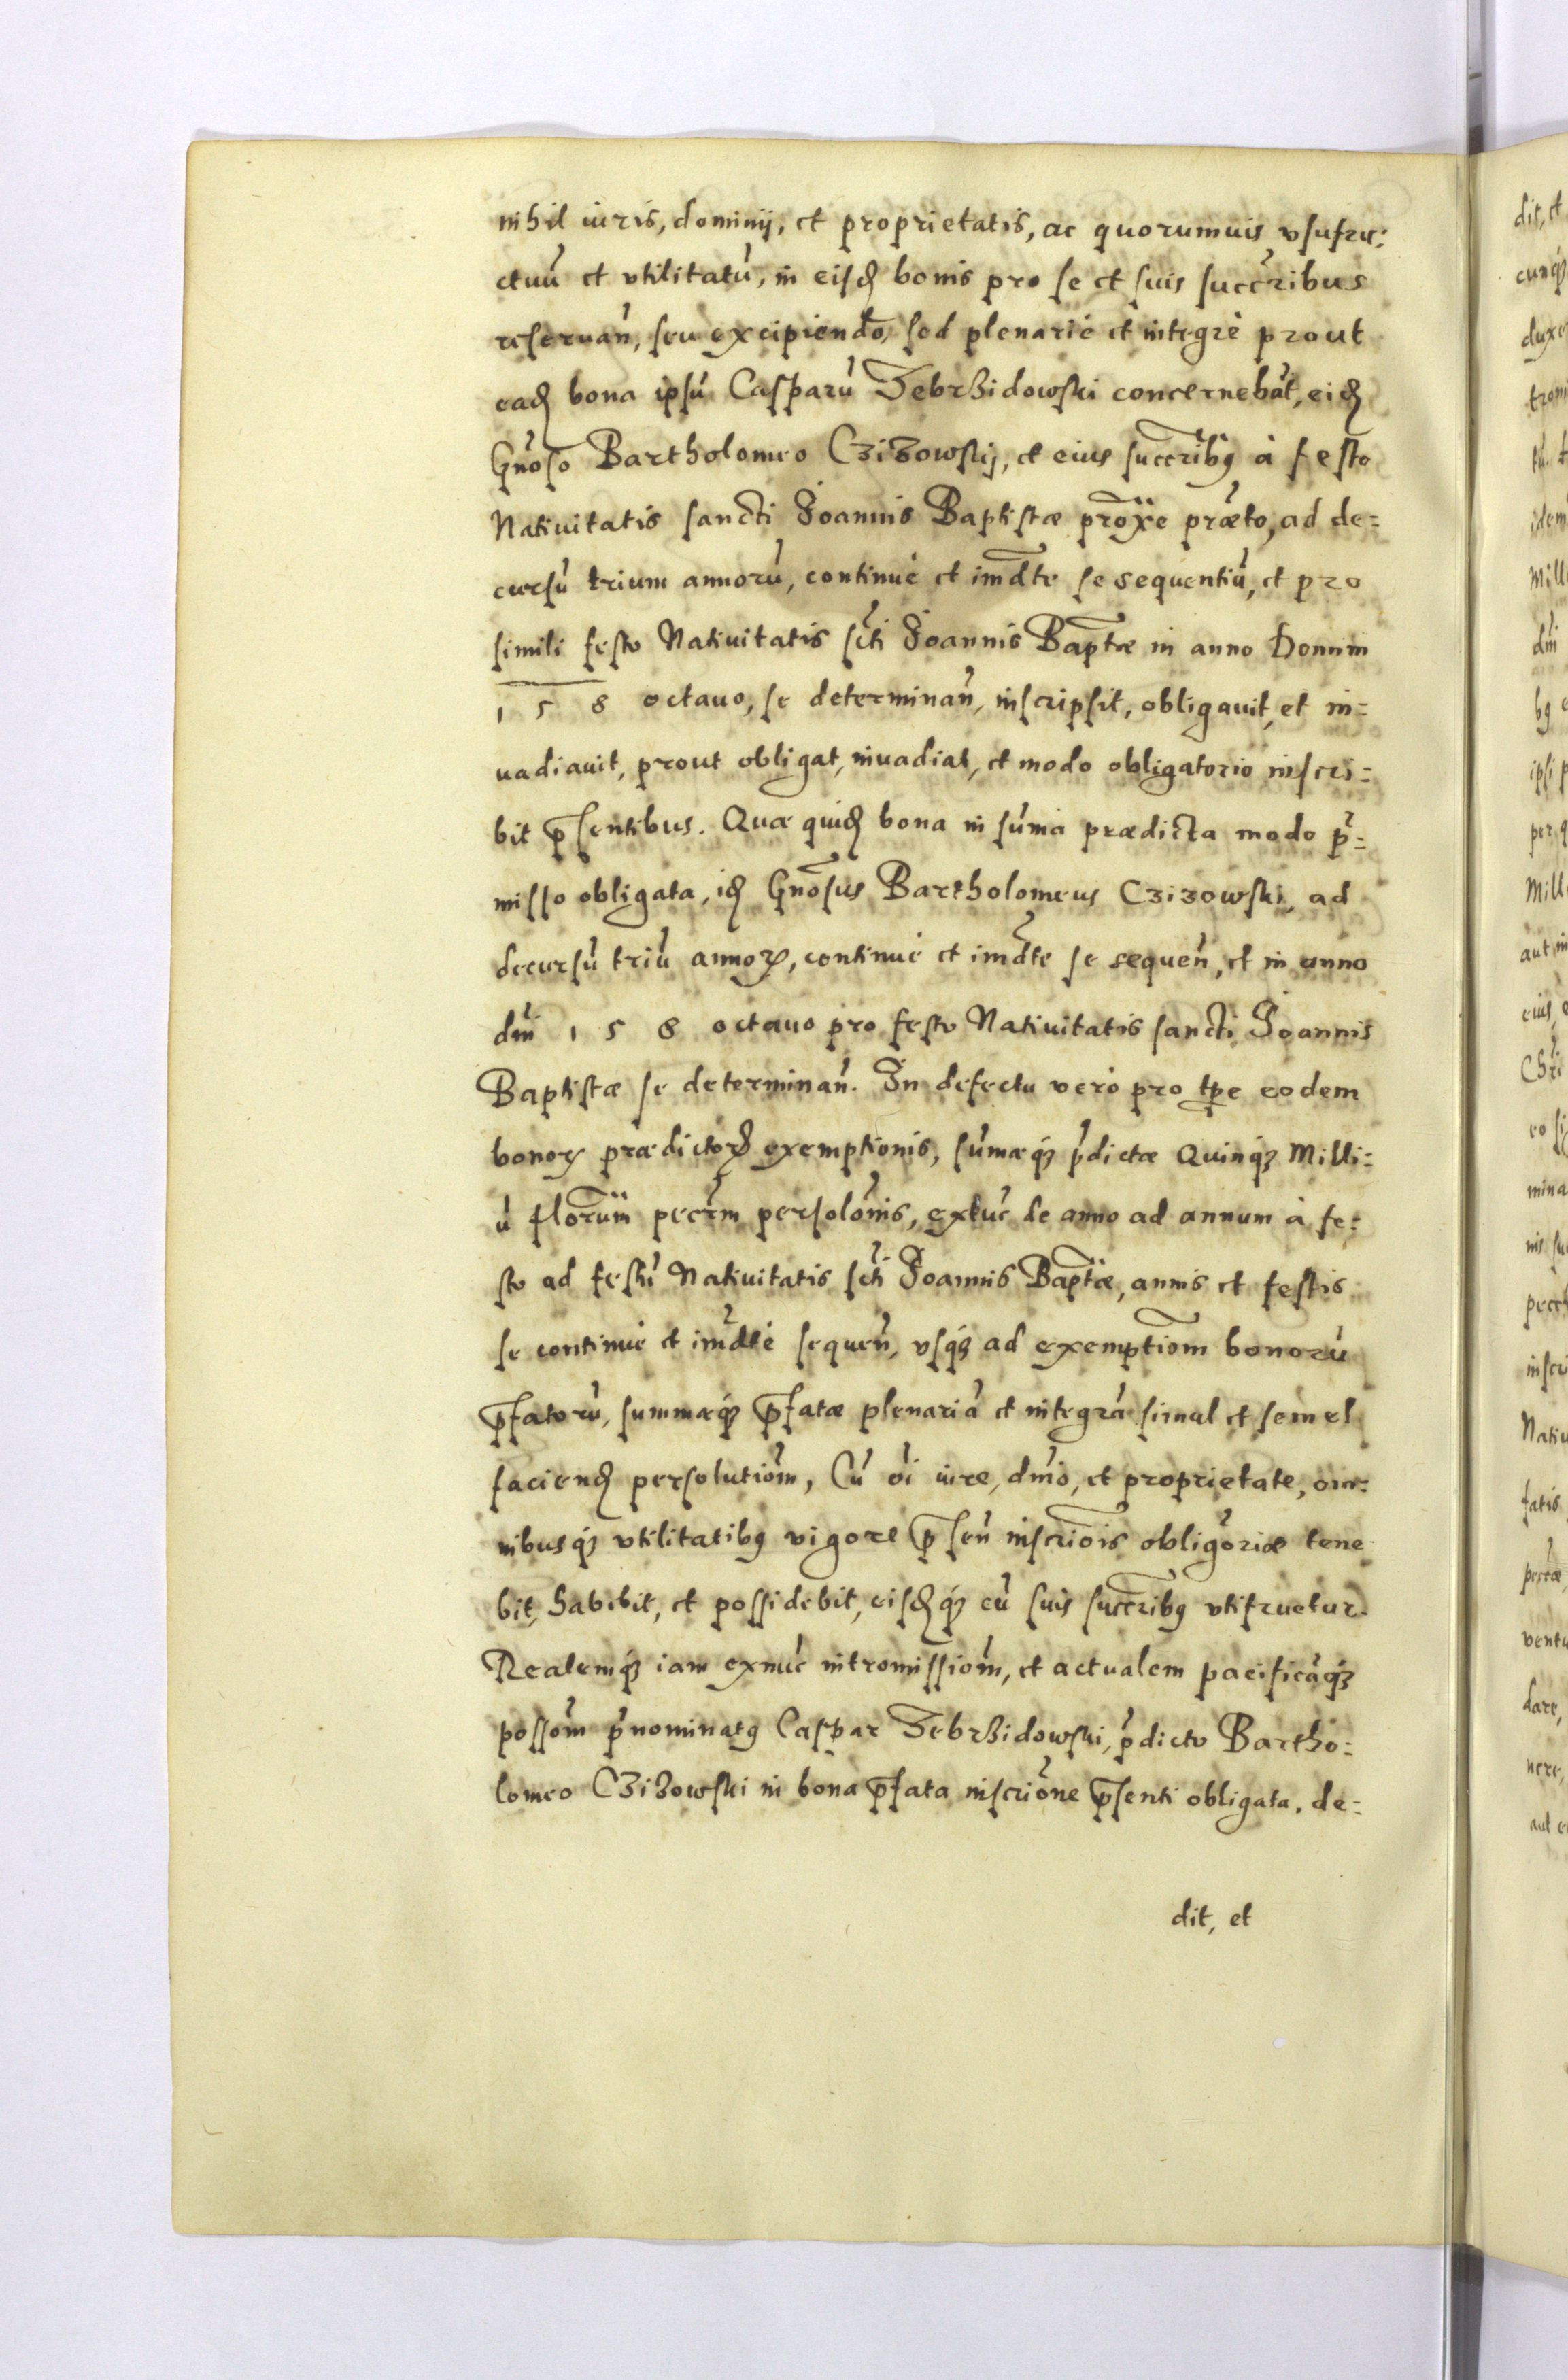 nihil iuris, dominij, et proprietatis, ac quorumuis vsufru:
ctuũ et vtilitatũ, in eisd̃ bonis pro se et suis succr̃ibus
reseruañ, seu excipiendo, sed plenariè et integrè prout
ead̃ bona ipsũ Casparũ Zebrzidowski concernebãt, eid̃
Gñoso Bartholomeo Czizowskij, et eius succr̃ibꝯ à festo
Natiuitatis sancti Joannis Baptistæ prõxe præ̃to, ad de=
cursũ trium annorũ, continuè et imd̃te se sequentiũ, et pro
simili festo Natiuitatis sc̃ti Joannis Bapt̃æ in anno Domini
1 5 8 octauo, se determinañ, inscripsit, obligauit, et in=
uadiauit, prout obligat, inuadiat, et modo obligatorio inscri=
bit p̃sentibus. Quæ quid̃ bona in sũma prædicta modo p̃=
misso obligata, id̃ Gñosus Bartholomeus Czizowski, ad
decursũ triũ annoꝝ, continuè et imd̃te se sequeñ, et in anno
dñi 1 5 8 octauo pro festo Natiuitatis sancti Joannis
Baptistæ se determinañ. In defectu verò pro tp̃e eodem
bonoꝝ prædictoꝝ exemptionis, sũmæqꝫ p̃dictæ Quinqꝫ Milli=
ũ flor̃um pecr̃m persolõnis, extũc de anno ad annum à fe:
sto ad festũ Natiuitatis sc̃ti Joannis Bapt̃æ, annis et festis
se continuè et imd̃tè sequeñ, vsqꝫ ad exemptiõm bonorũ
p̃fatorũ, summæqꝫ p̃fatæ plenariã et integrã simul et semel
faciend̃ persolutiõm, Cũ õi iure, dñio, et proprietate, om=
nibusqꝫ vtilitatibꝯ vigore p̃señ inscriõis obligõriæ tene
bit, habebit, et possidebit, eisd̃qꝫ cũ suis succr̃ibꝯ vtifruetur.
Realemqꝫ iam exnũc intromissiõm, et actualem pacificãqꝫ
possõm p̃nominatꝯ Caspar Zebrzidowski, p̃dicto Bartho=
lomeo Czizowski in bona p̃fata inscriõne p̃senti obligata. de=
dit, et